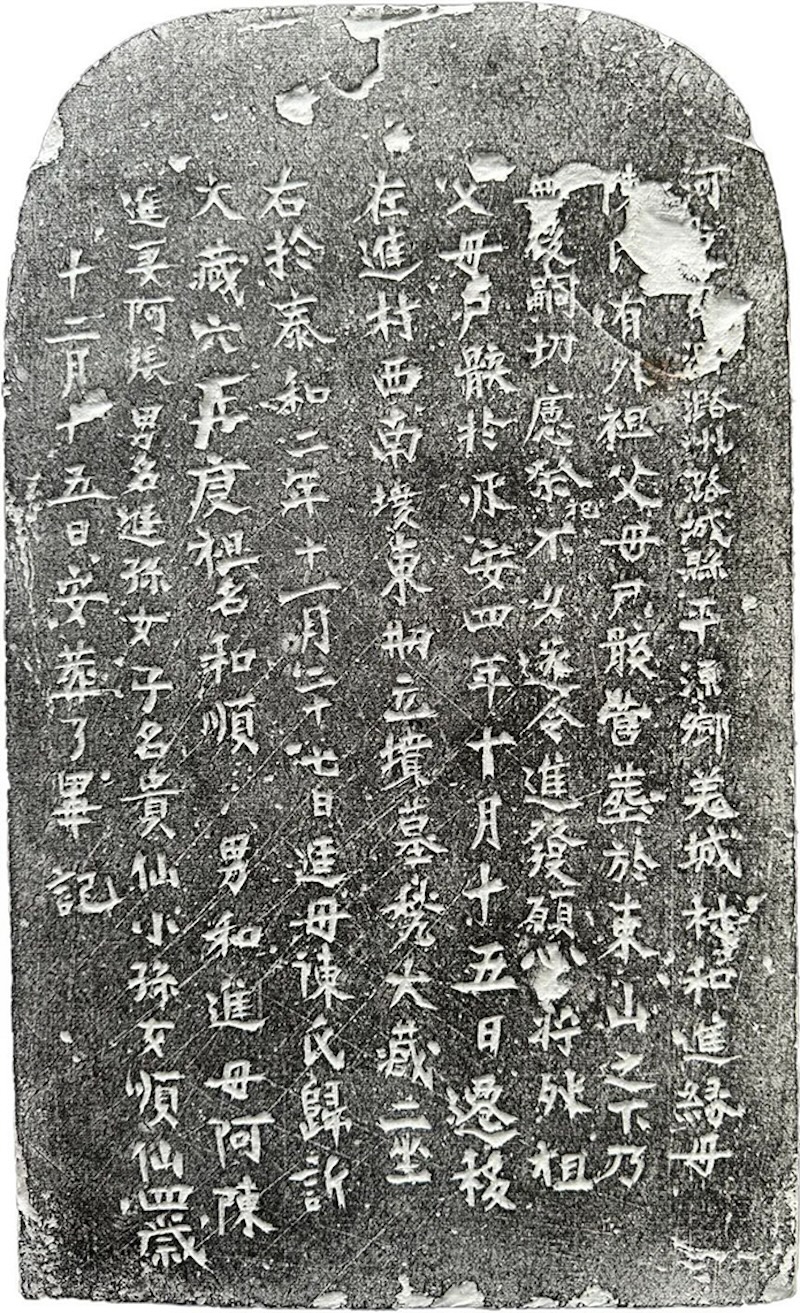 河潞州潞城縣平凉鄉羌城村和進緣母
陳氏有外祖父母尸骸當葬於東山之下乃
無後嗣切慮祭祀不久遂令進發願將外祖
父母尸骸於承安四年十月十五日遷移
在進村西南墳東刱立墳墓甃大藏二坐
右於泰和二年十一月二十七日進母陳氏歸訴
大藏六 祖名和順 男和進母阿陳
進妻阿張 男名進孫女子名貴仙小孫女順仙四歲
十二月十五日安葬了畢記